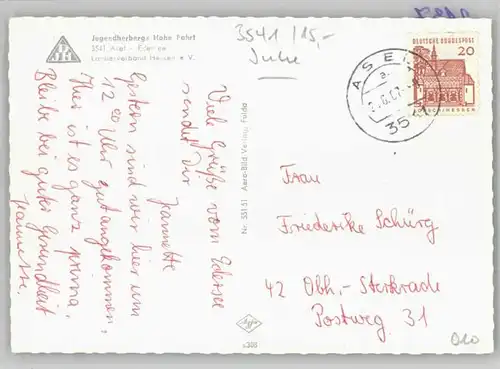 Jugendherberge Hohe Fahrt
3541 Asel - Edersee
Landesverband Hessen e. V.
3541 /15,-
DEUTSCHE BUNDESPOST
20
ASEL
a
354
Viele Grüße vom Edersee
sendet Dir
Jannette
Gestern sind wir hier um
12 00 Uhr gut angekommen.
Hier ist es ganz prima.
Bleibe bei guter Gesundheit
Jannette.
Nr. 551-51 Aero-Bild Verlag, Fulda
Frau
Friederike Schürg
42 Obh.- Sterkrade
Postweg 31
Agfa